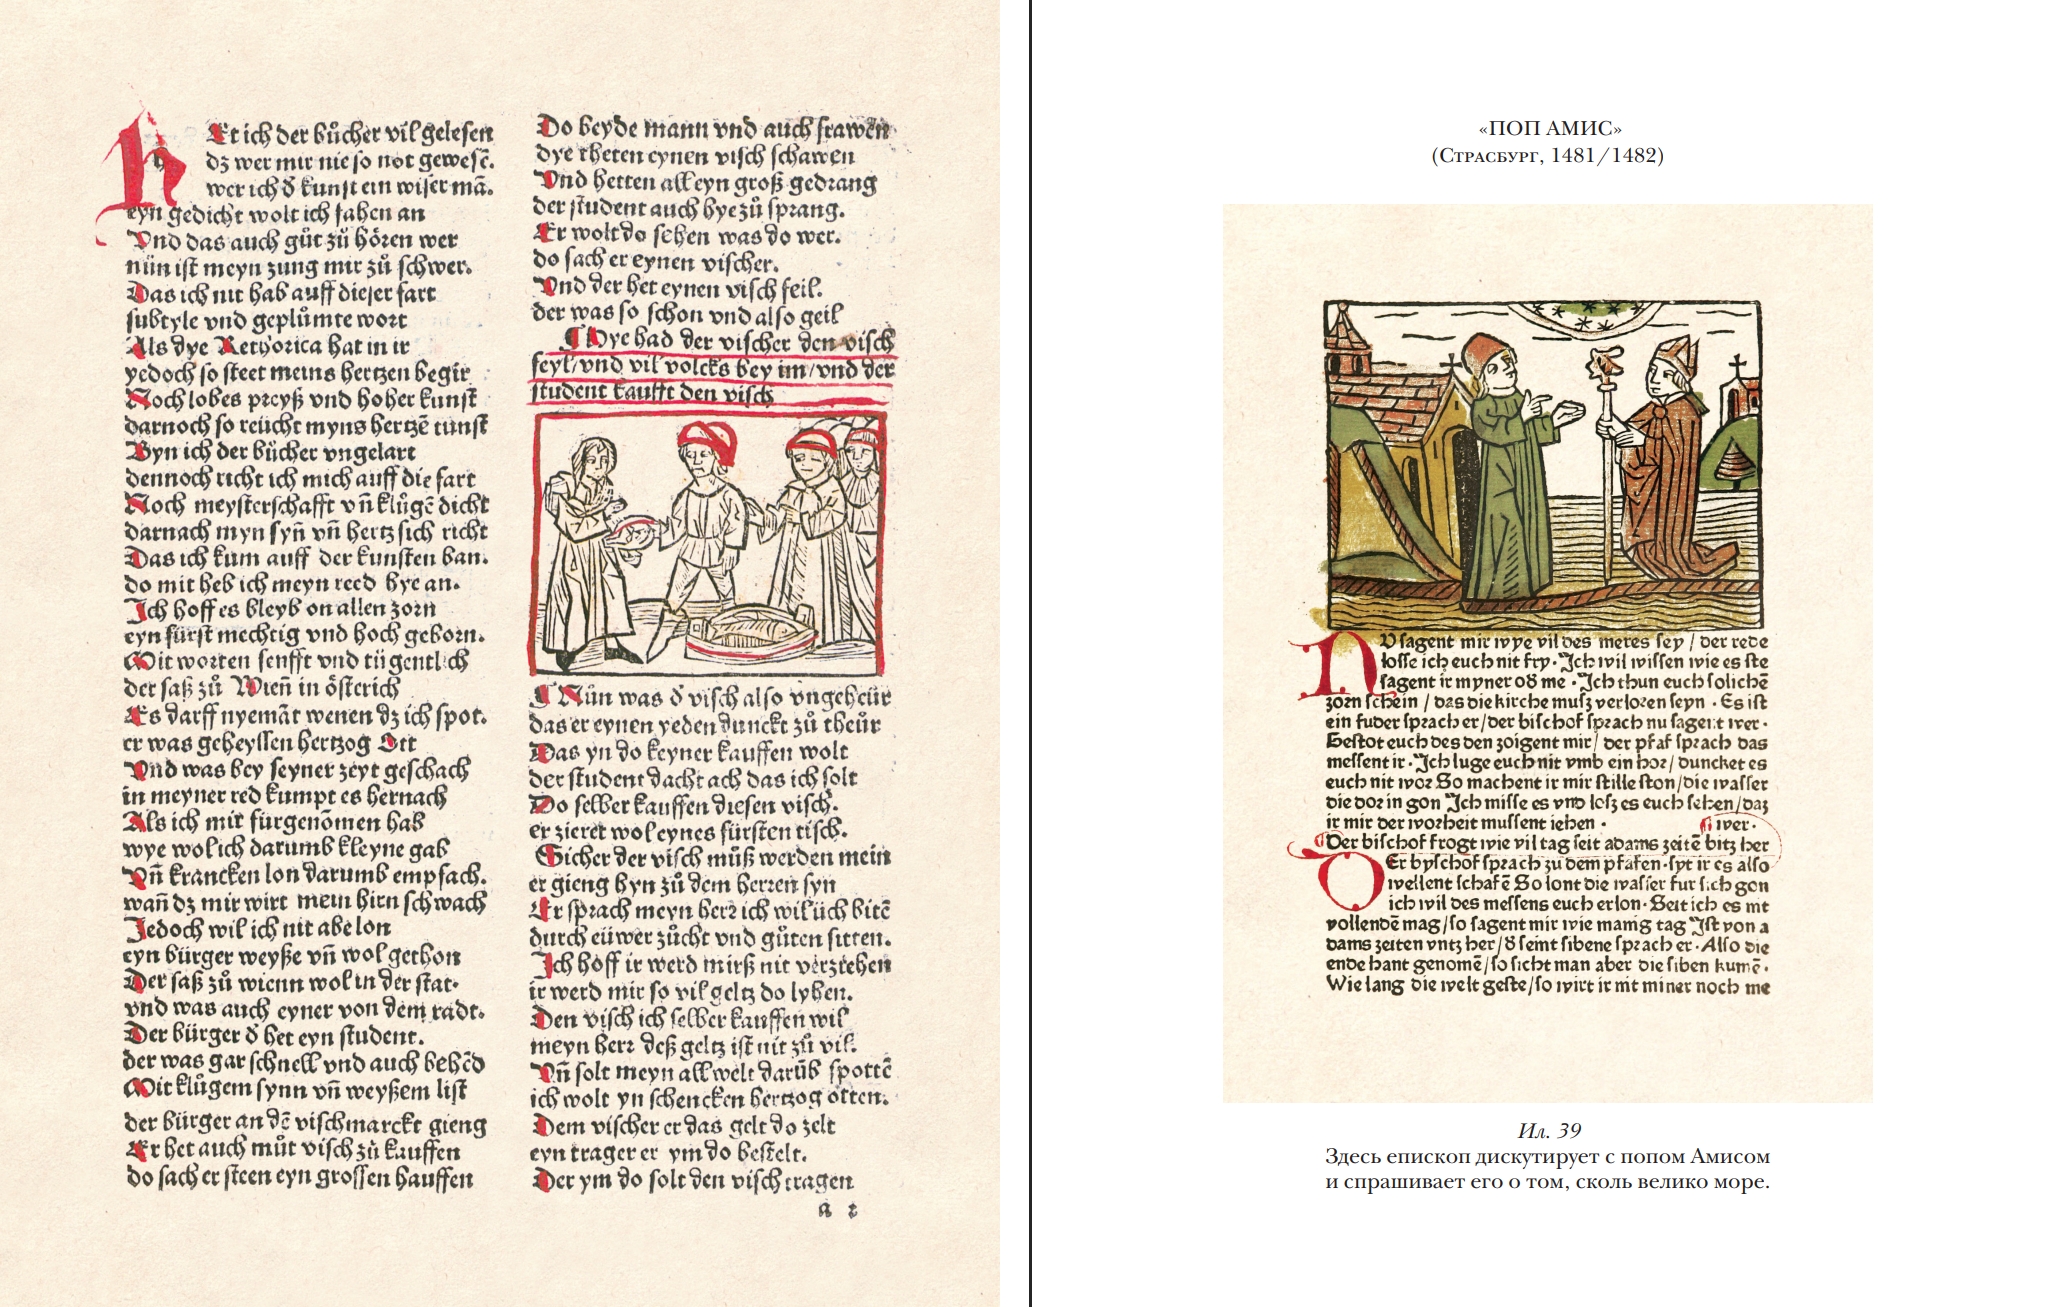 Het ich der bůcher vil gelesen
dz wer mir nie so not gewesē.
wer ich d̕ kunst ein wiser mā.
eyn gedicht wolt ich fahen an
Vnd das auch gůt zů hören wer
nůn ist meyn zung mir zů schwer.
Das ich nit hab auff dieser fart
subtyle vnd geplůmte wort
Als dye Rethorica hat in ir
yedoch so steet meins hertzen begir
Noch lobes preyß vnd hoher kunst
darnoch so reücht myns hertzē tunst
Byn ich der bücher vngelart
dennoch richt ich mich auff die fart
Noch meysterschafft vn̄ klůgē dicht
darnach myn syn̄ vn̄ hertz sich richt
Das ich kum auff der kunsten ban.
do mit heb ich meyn reed hye an.
Ich hoff es bleyb on allen zorn
eyn fürst mechtig vnd hoch geborn.
Mit worten senfft vnd tügentlich
der saß zů Wien̄ in österich
Es darff nyemāt wenen dz ich spot.
er was geheyssen hertzog Ott
Vnd was bey seyner zeyt geschach
in meyner red kumpt es hernach
Als ich mir fürgenōmen hab
wye wol ich darumb kleyne gab
Vn̄ krancken lon darumb empfach.
wan̄ dz mir wirt mein hirn schwach
Jedoch wil ich nit abe lon
eyn bürger weyße vn̄ wol gethon
Der saß zů wienn wol in der stat.
vnd was auch eyner von dem radt.
Der bürger d̕ het eyn student.
der was gar schnell vnd auch behēd
Mit klůgem synn vn̄ weyßem list
der bürger an dē vischmarckt gieng
Er het auch můt visch zů kauffen
do sach er steen eyn grossen hauffen
Do beyde mann vnd auch frawēn
dye theten eynen visch schawen
Vnd hetten all eyn groß gedrang
der student auch hye zů sprang.
Er wolt do sehen was do wer.
do sach er eynen vischer.
Vnd der het eynen visch feil.
der was so schon vnd also geil
¶ Wye had der vischer den visch
feyl/vnd vil volcks bey im/vnd der
student kaufft den visch
¶ Nůn was d̕ visch also vngeheür
das er eynen yeden dunckt zů theür
Das yn do keyner kauffen wolt
der student dacht ach das ich solt
Do selber kauffen diesen visch.
er zieret wol eynes fürsten tisch.
Sicher der visch můß werden mein
er gieng hyn zů dem herren syn
Er sprach meyn herr ich wil üch bitē
durch eüwer zücht vnd gůten sitten.
Ich hoff ir werd mirß nit verziehen
ir werd mir so vil geltz do lyhen.
Den visch ich selber kauffen wil
meyn herr deß geltz ist nit zů vil.
Vn̄ solt meyn all welt darūb spottē
ich wolt yn schencken hertzog otten.
Dem vischer er das gelt do zelt
eyn trager er ym do bestelt.
Der ym do solt den visch tragen
a 2
«ПОП АМИС»
(Страсбург, 1481/1482)
NV sagent mir wye vil des meres sey / der rede
losse ich euch nit fry. Ich wil wissen wie es ste
sagent ir myner od̕ me. Ich thun euch solichē
zorn schein / das die kirche musz verloren seyn. Es ist
ein fuder sprach er/der bischof sprach nu sagent wer.
Gestot euch des den zoigent mir/ der pfaf sprach das
messent ir. Ich luge euch nit vmb ein hor/ duncket es
euch nit wor So machent ir mir stille ston/die wasser
die dor in gon Ich misse es vnd losz es euch sehen/daz
ir mir der worheit mussent iehen.
¶ wer.
Der bischof frogt wie vil tag seit adams zeitē bitz her
DEr byschof sprach zu dem pfafen. syt ir es also
wellent schafē So lont die wasser fur sich gon
ich wil des messens euch erlon. Seit ich es nit
vollendē mag/so sagent mir wie manig tag Ist von a
dams zeiten vntz her/d̕ seint sibene sprach er. Also die
ende hant genomē/so sicht man aber die siben kumē.
Wie lang die welt geste/so wirt ir nit miner noch me
Ил. 39
Здесь епископ дискутирует с попом Амисом
и спрашивает его о том, сколь велико море.